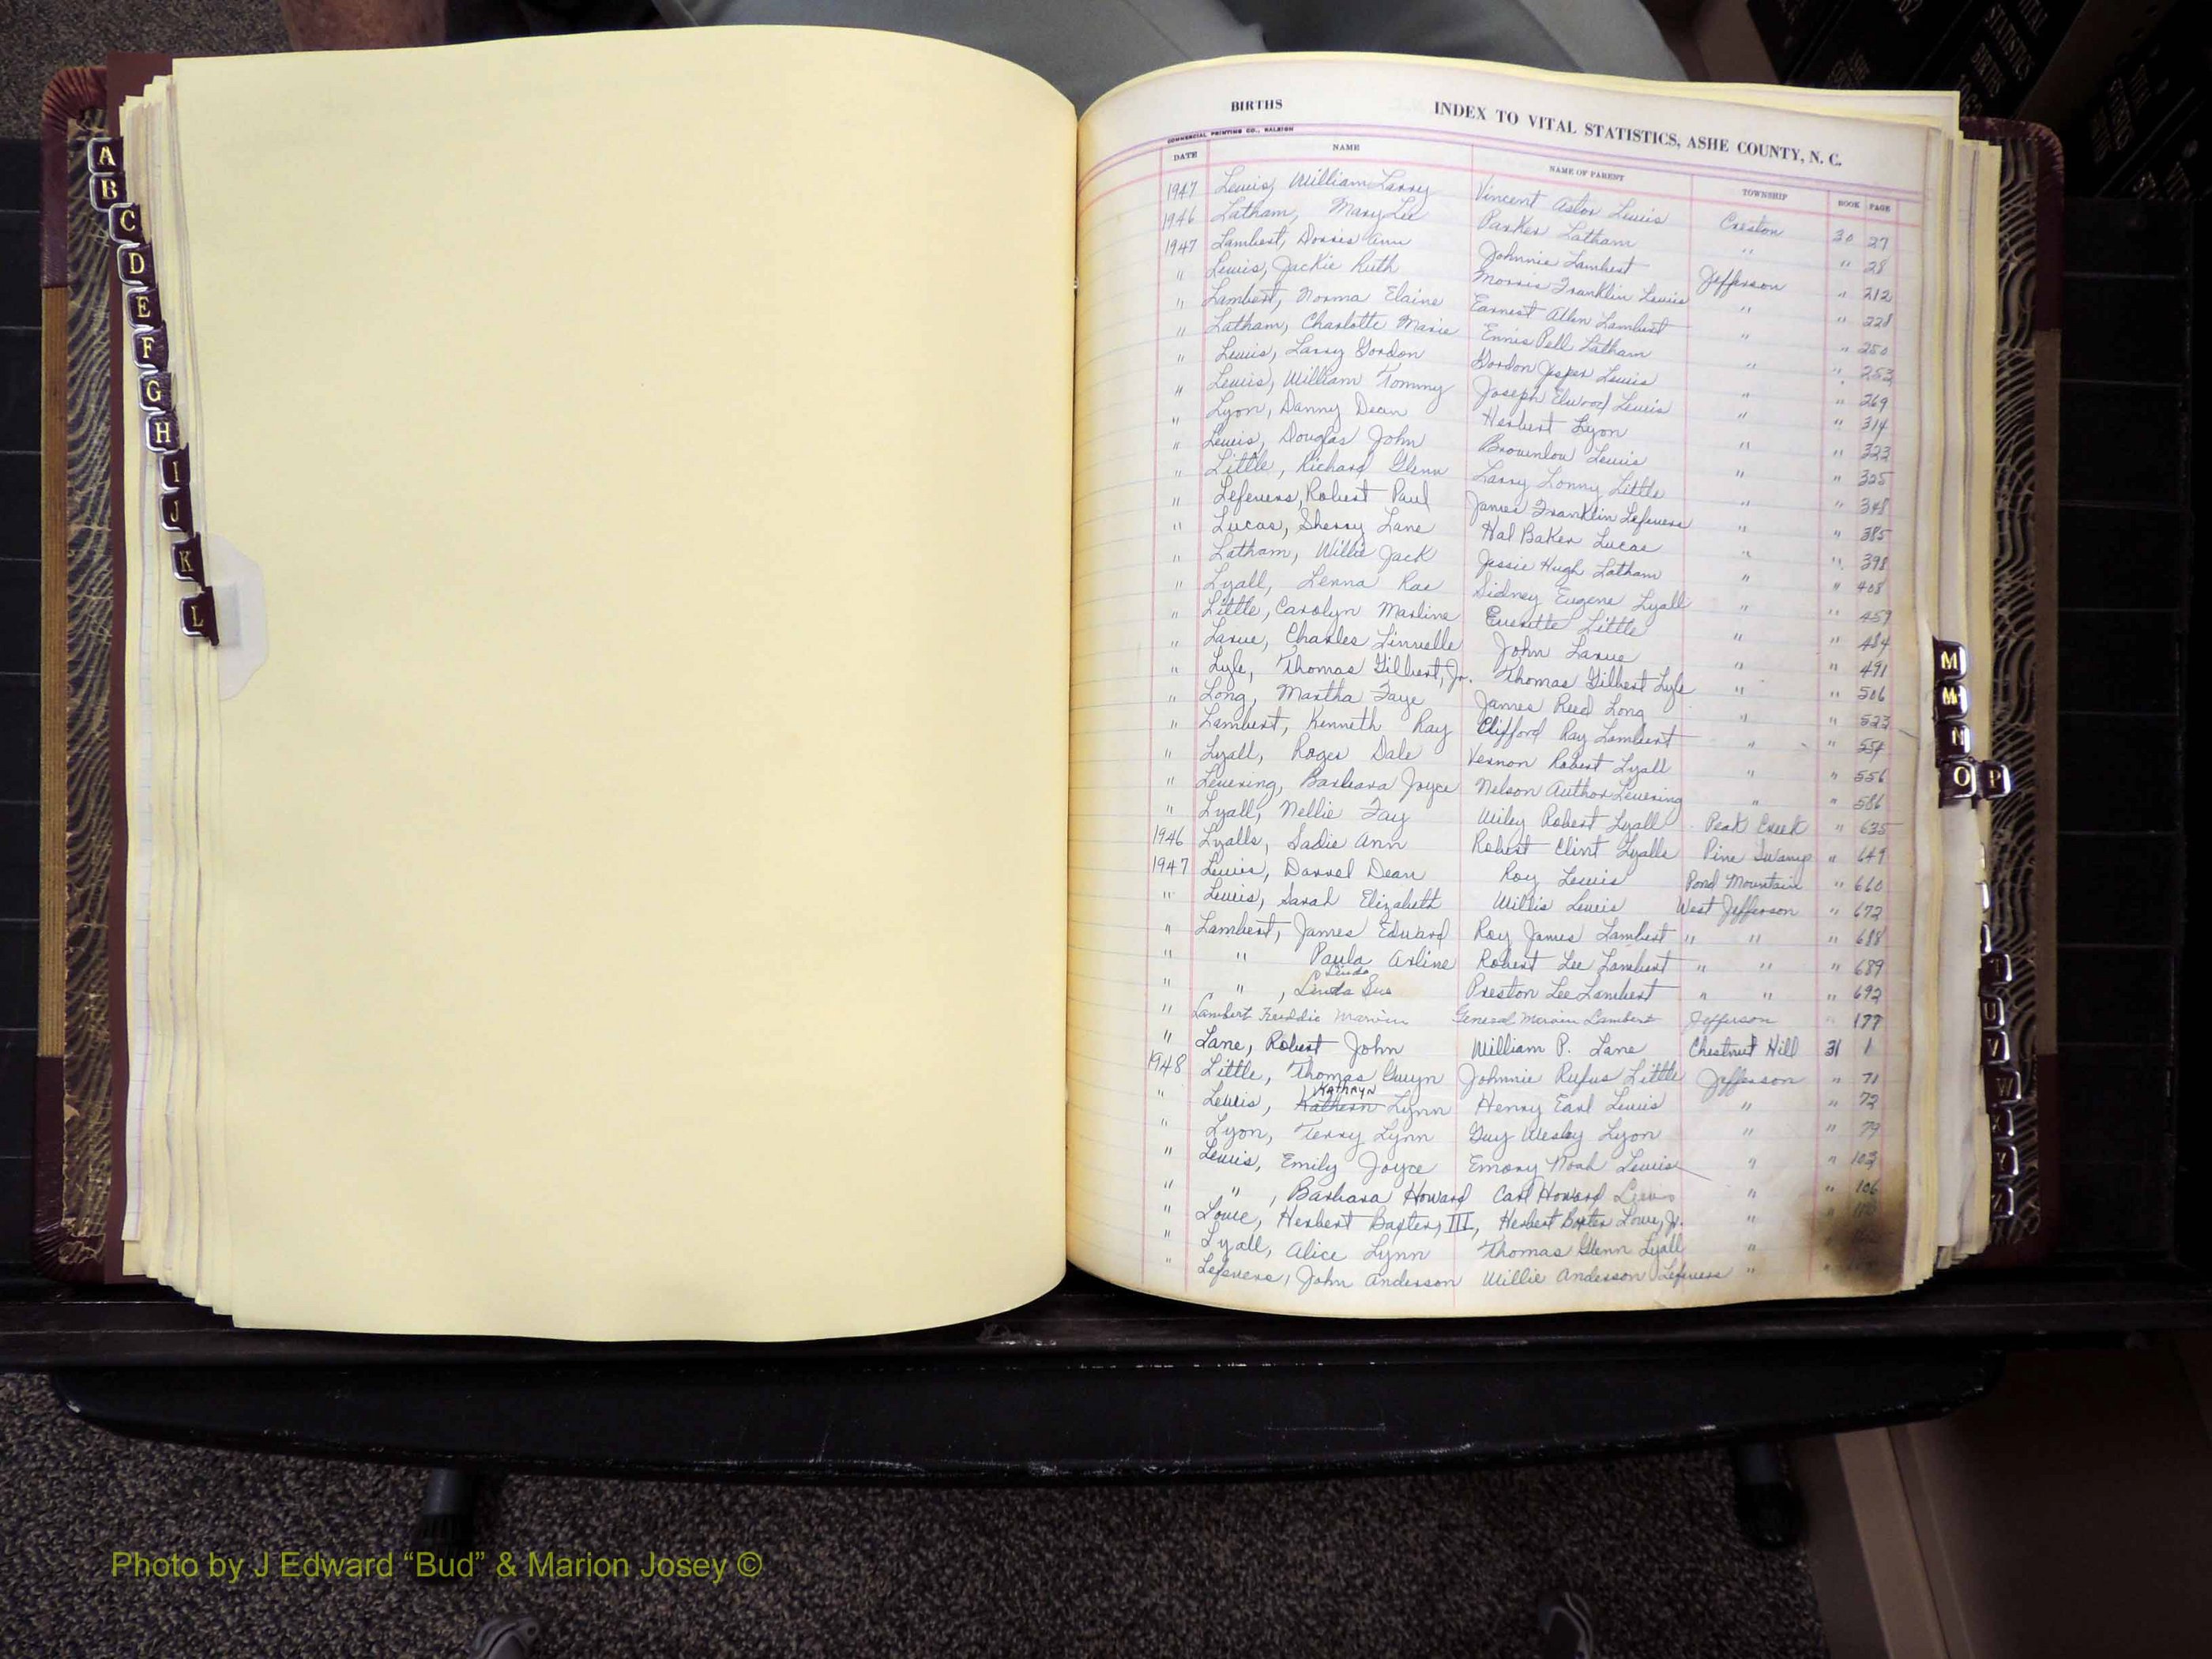 BIRTHS INDEX TO VITAL STATISTICS, ASHE COUNTY, N. C.
COMMERCIAL PRINTING CO., RALEIGH
DATE NAME NAME OF PARENT TOWNSHIP BOOK PAGE
1947 Lewis, William Larry Vincent Astor Lewis Creston 30 27
1946 Latham, Mary Lee Parker Latham " " 28
1947 Lambert, Dorris Ann Johnnie Lambert Jefferson " 212
" Lewis, Jackie Ruth Morris Franklin Lewis " " 228
" Lambert, Norma Elaine Earnest Allen Lambert " " 250
" Latham, Charlotte Marie Ennis Pell Latham " " 253
" Lewis, Larry Gordon Gordon Jesper Lewis " " 269
" Lewis, William Tommy Joseph Elwood Lewis " " 314
" Lyon, Danny Dean Herbert Lyon " " 323
" Lewis, Douglas John Brownlow Lewis " " 325
" Little, Richard Glenn Larry Lonny Little " " 348
" Lefevers, Robert Paul James Franklin Lefevers " " 385
" Lucas, Sherry Lane Hal Baker Lucas " " 398
" Latham, Willie Jack Jessie Hugh Latham " " 408
" Lyall, Lenna Rae Sidney Eugene Lyall " " 459
" Little, Carolyn Marline Everette Little " " 484
" Larue, Charles Linvelle John Larue " " 491
" Lyle, Thomas Gilbert, Jr. Thomas Gilbert Lyle " " 506
" Long, Martha Faye James Reed Long " " 523
" Lambert, Kenneth Ray Clifford Ray Lambert " " 554
" Lyall, Roger Dale Vernon Robert Lyall " " 556
" Levering, Barbara Joyce Nelson Author Levering " " 586
" Lyall, Nellie Fay Wiley Robert Lyall Peak Creek " 635
1946 Lyalls, Sadie Ann Robert Clint Lyalls Pine Swamp " 649
1947 Lewis, Darrel Dean Roy Lewis Pond Mountain " 660
" Lewis, Sarah Elizabeth Willis Lewis West Jefferson " 672
" Lambert, James Edward Roy James Lambert " " " 688
" " Paula Arline Robert Lee Lambert " " " 689
Linda
" " , Linda Sue Preston Lee Lambert " " " 692
" Lambert Freddie Marvin General Marvin Lambert Jefferson " 177
" Lane, Robert John William P. Lane Chestnut Hill 31 1
1948 Little, Thomas Gwyn Johnnie Rufus Little Jefferson " 71
Kathryn
" Lewis, Kathern Lynn Henry Earl Lewis " " 72
" Lyon, Terry Lynn Guy Wesley Lyon " " 79
" Lewis, Emily Joyce Emory Noah Lewis " " 103
" " , Barbara Howard Carl Howard Lewis " " 106
" Lowe, Herbert Baxter, III, Herbert Baxter Lowe, Jr. " "
" Lyall, Alice Lynn Thomas Glenn Lyall "
" Lefevers, John Anderson Willie Anderson Lefevers "
A
B
C
D
E
F
G
H
I
J
K
L
M
Mc
N
O P
T
U
V
W
Y
VITAL STATISTICS BIRTHS
ASHE
Photo by J Edward “Bud” & Marion Josey ©